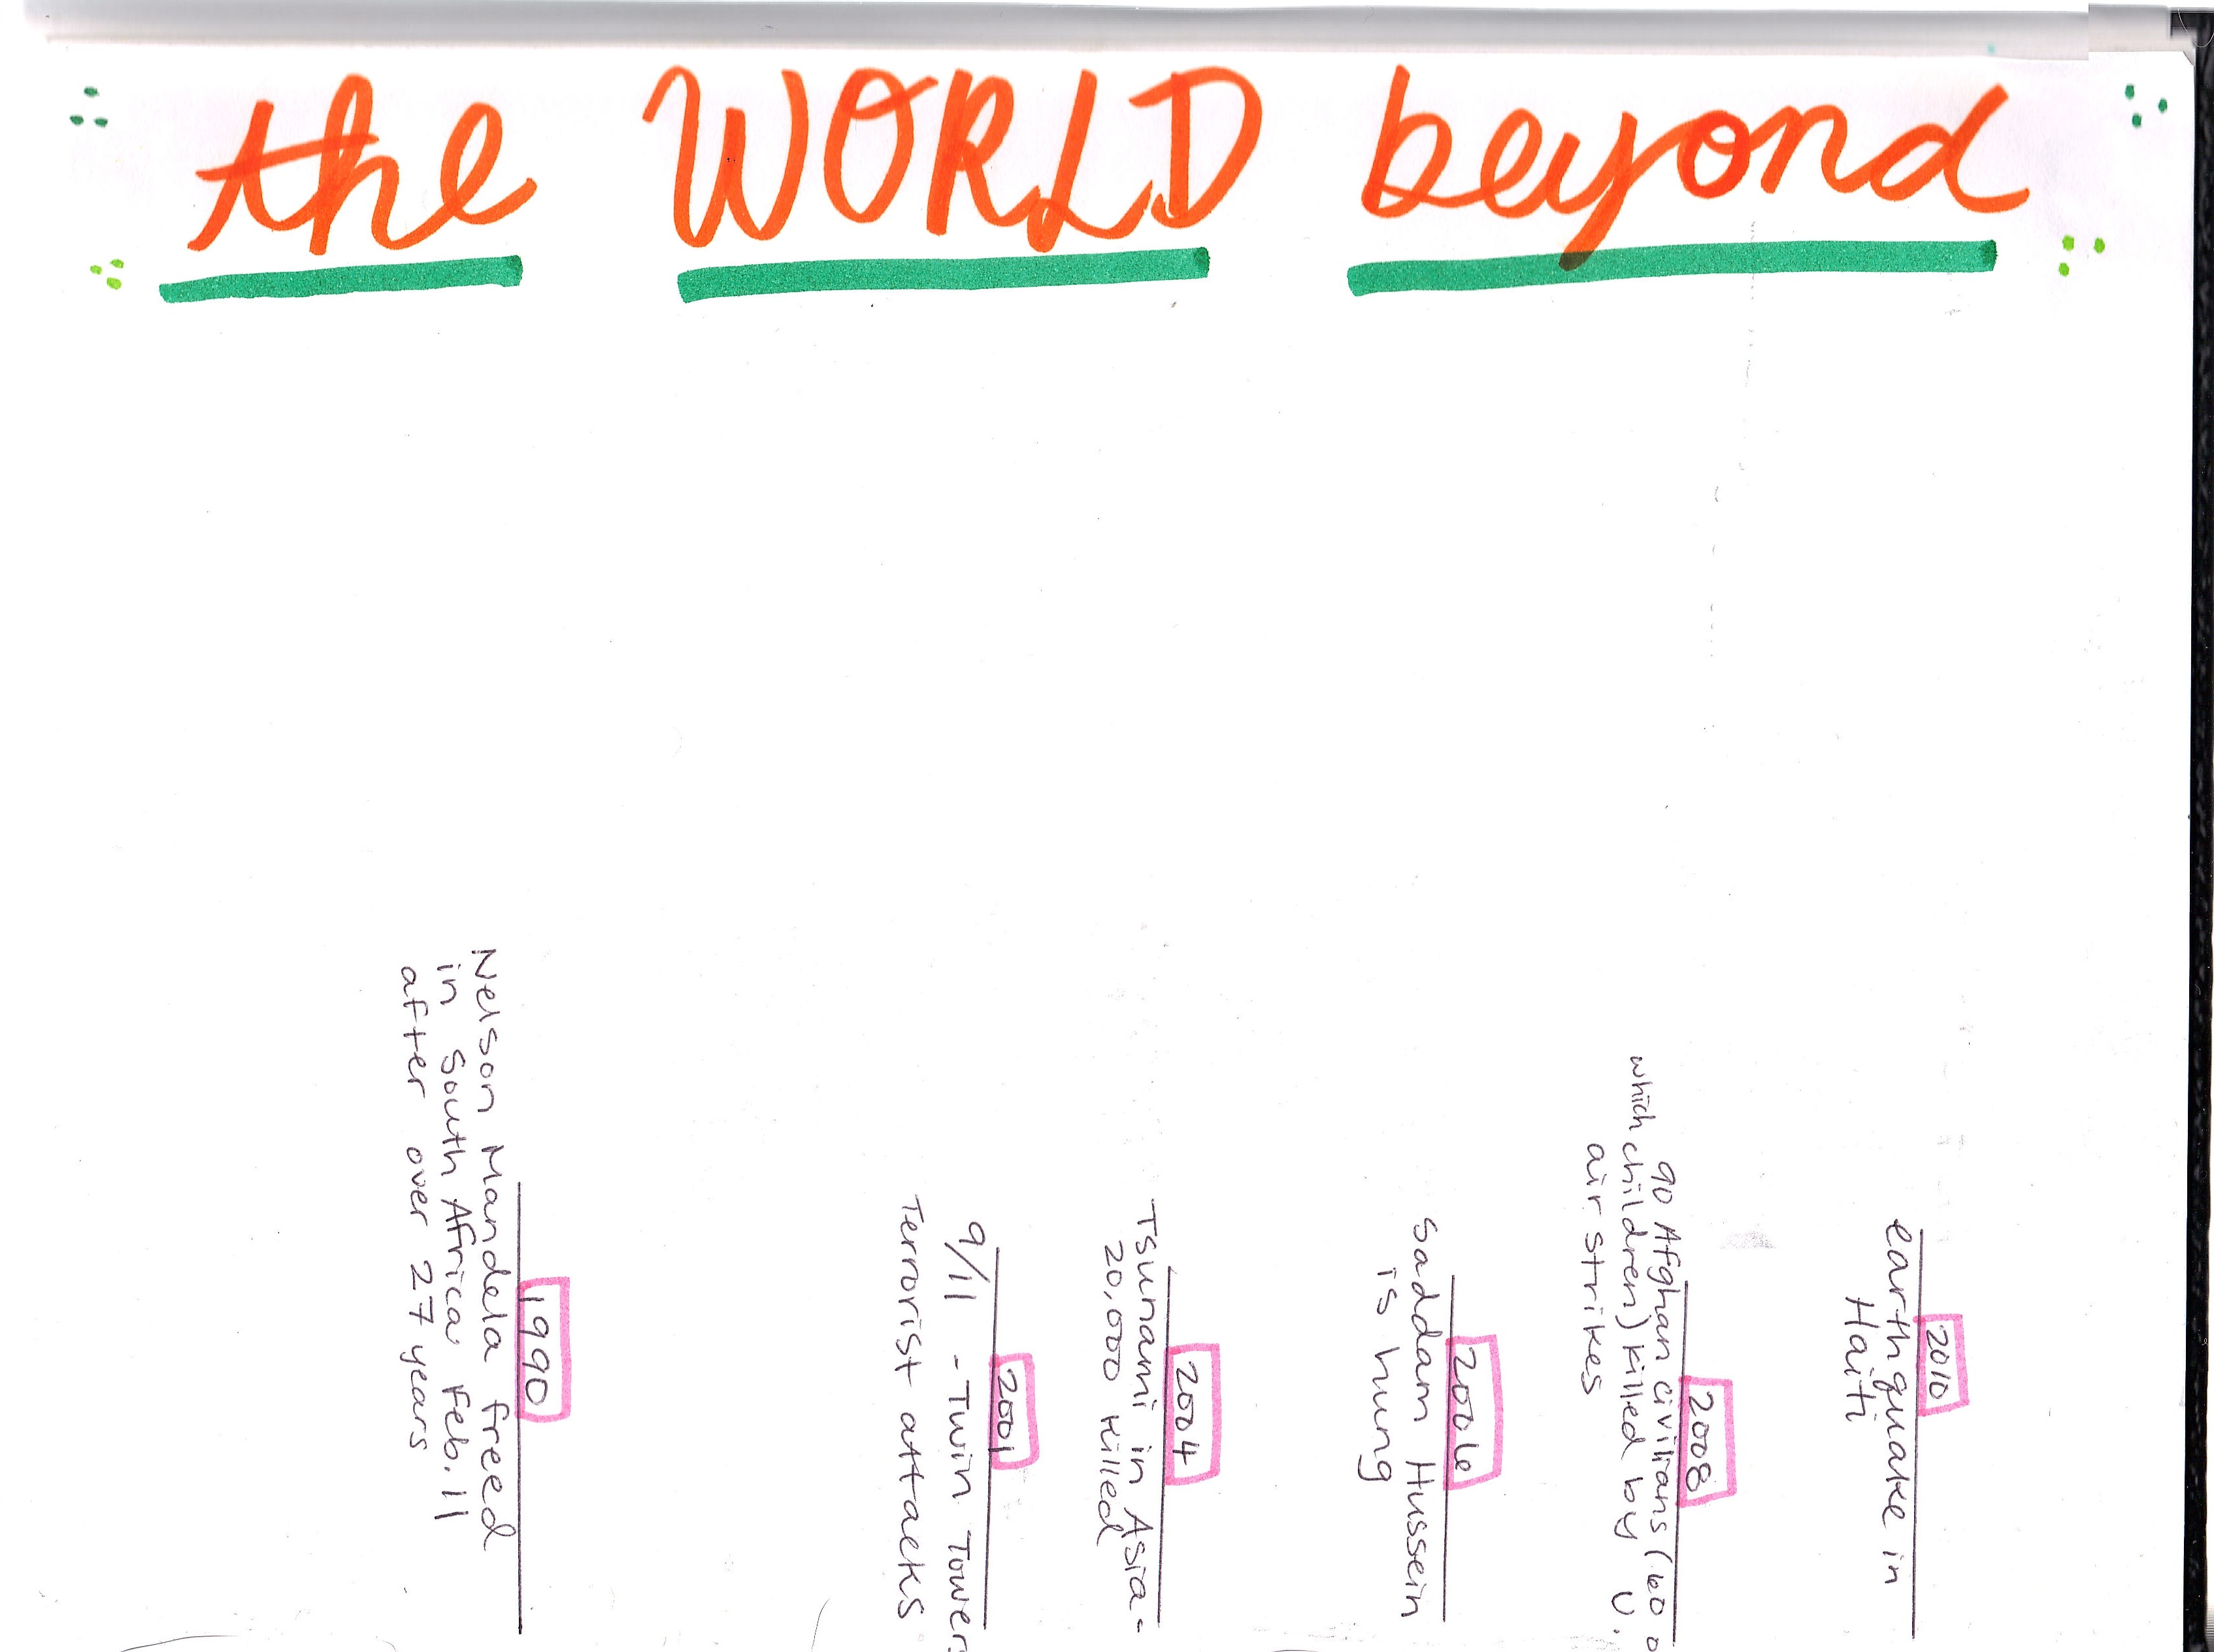 the WORLD beyond
1990
Nelson Mandela freed
in South Africa, Feb. 11
after over 27 years
2001
9/11 - Twin Tower
Terrorist attacks
2004
Tsunami in Asia -
20,000 killed
2006
Saddam Hussein
is hung
2008
90 Afghan civilians (60 o
which children) killed by U.
air strikes
2010
earthquake in
Haiti